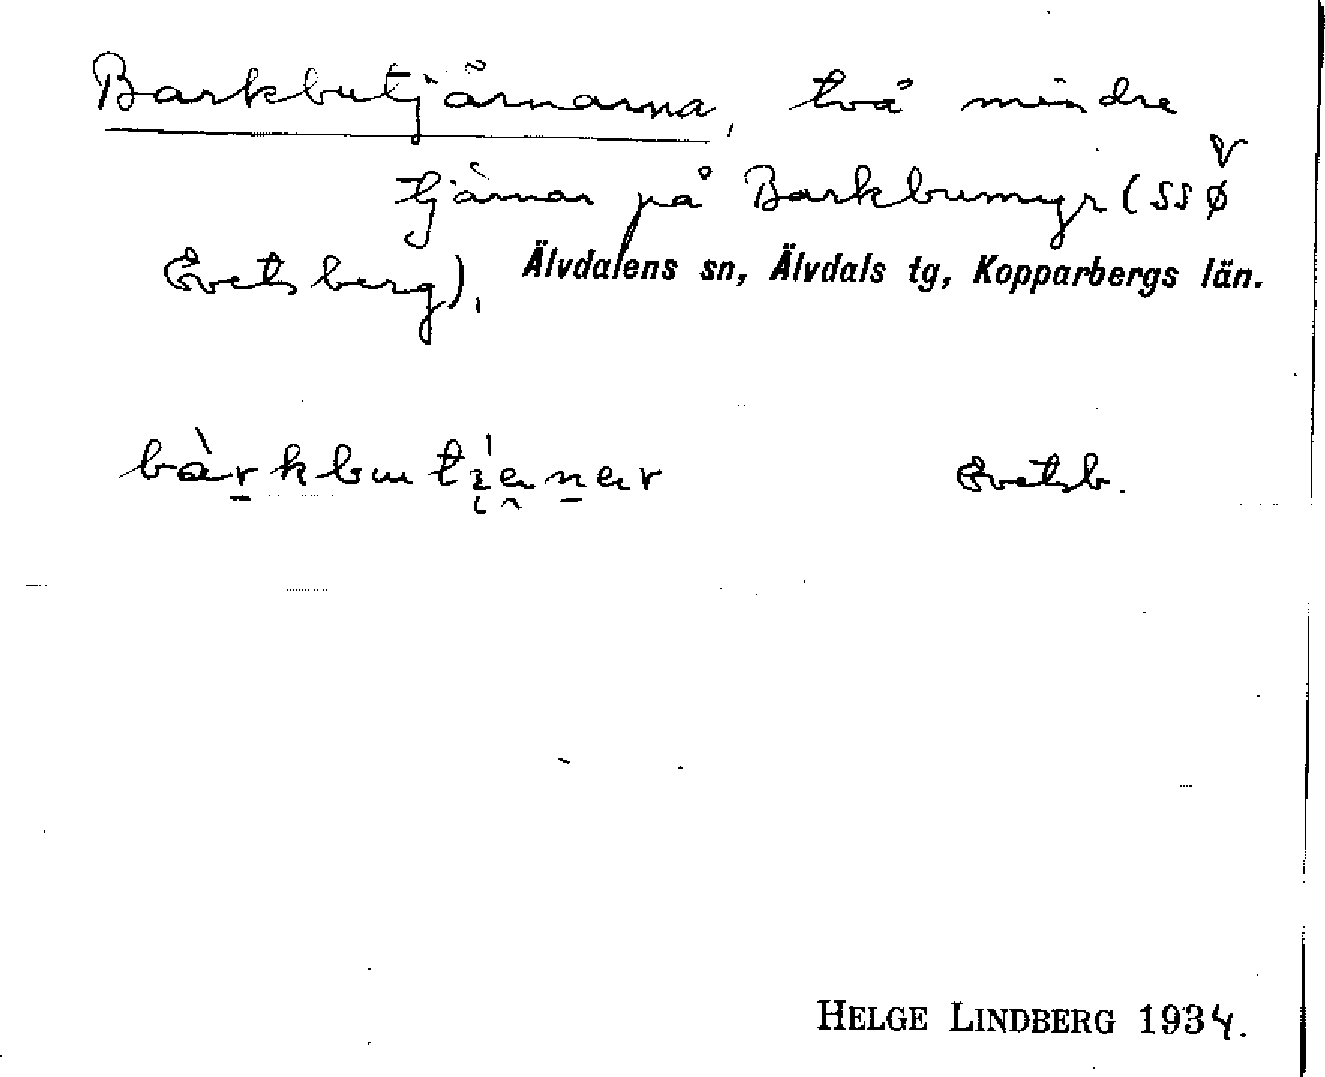 Barkbutjärnarna, två mindre
tjärnar på Barkbumyr (SSV
Evertsberg), Älvdalens sn, Älvdals tg, Kopparbergs län.
bàrkbutjenar Evertsb.
HELGE LINDBERG 1934.